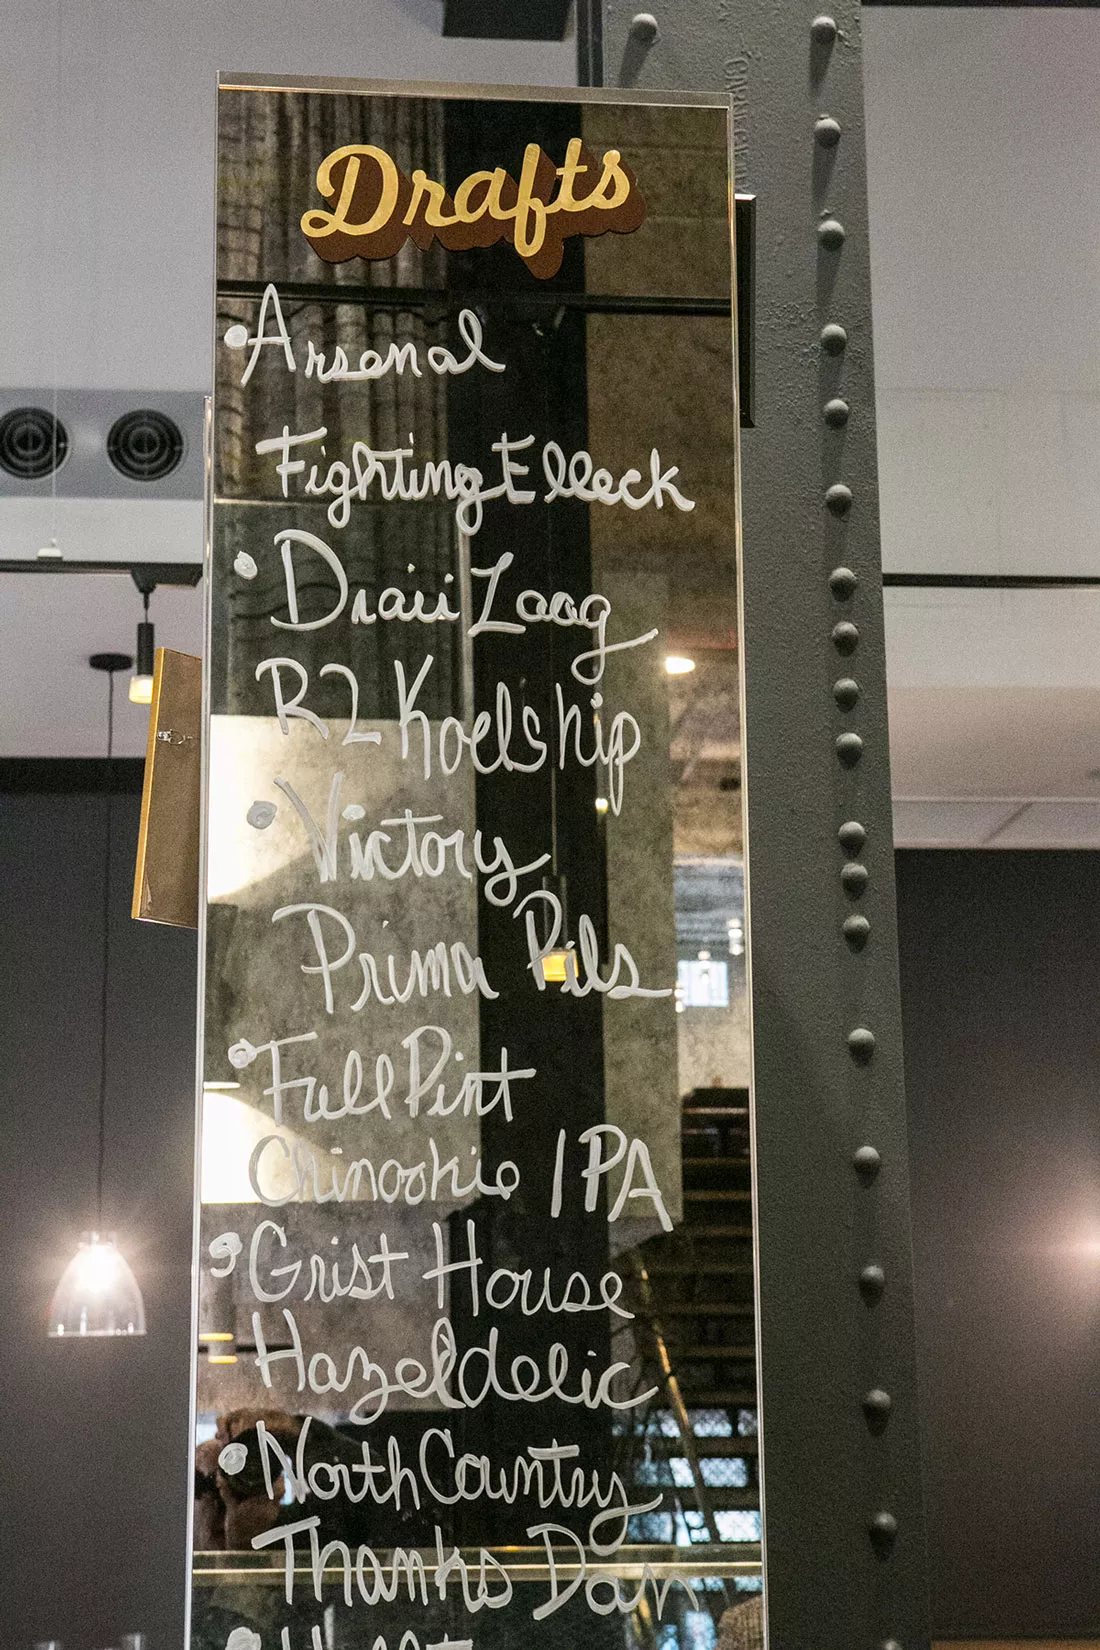 Drafts
• Arsenal
Fighting Elleck
• Draii Laag
R2 Koelship
• Victory
Prima Pils
• Full Pint
Chinookie IPA
• Grist House
Hazeldelic
• North Country
Thanks Dan